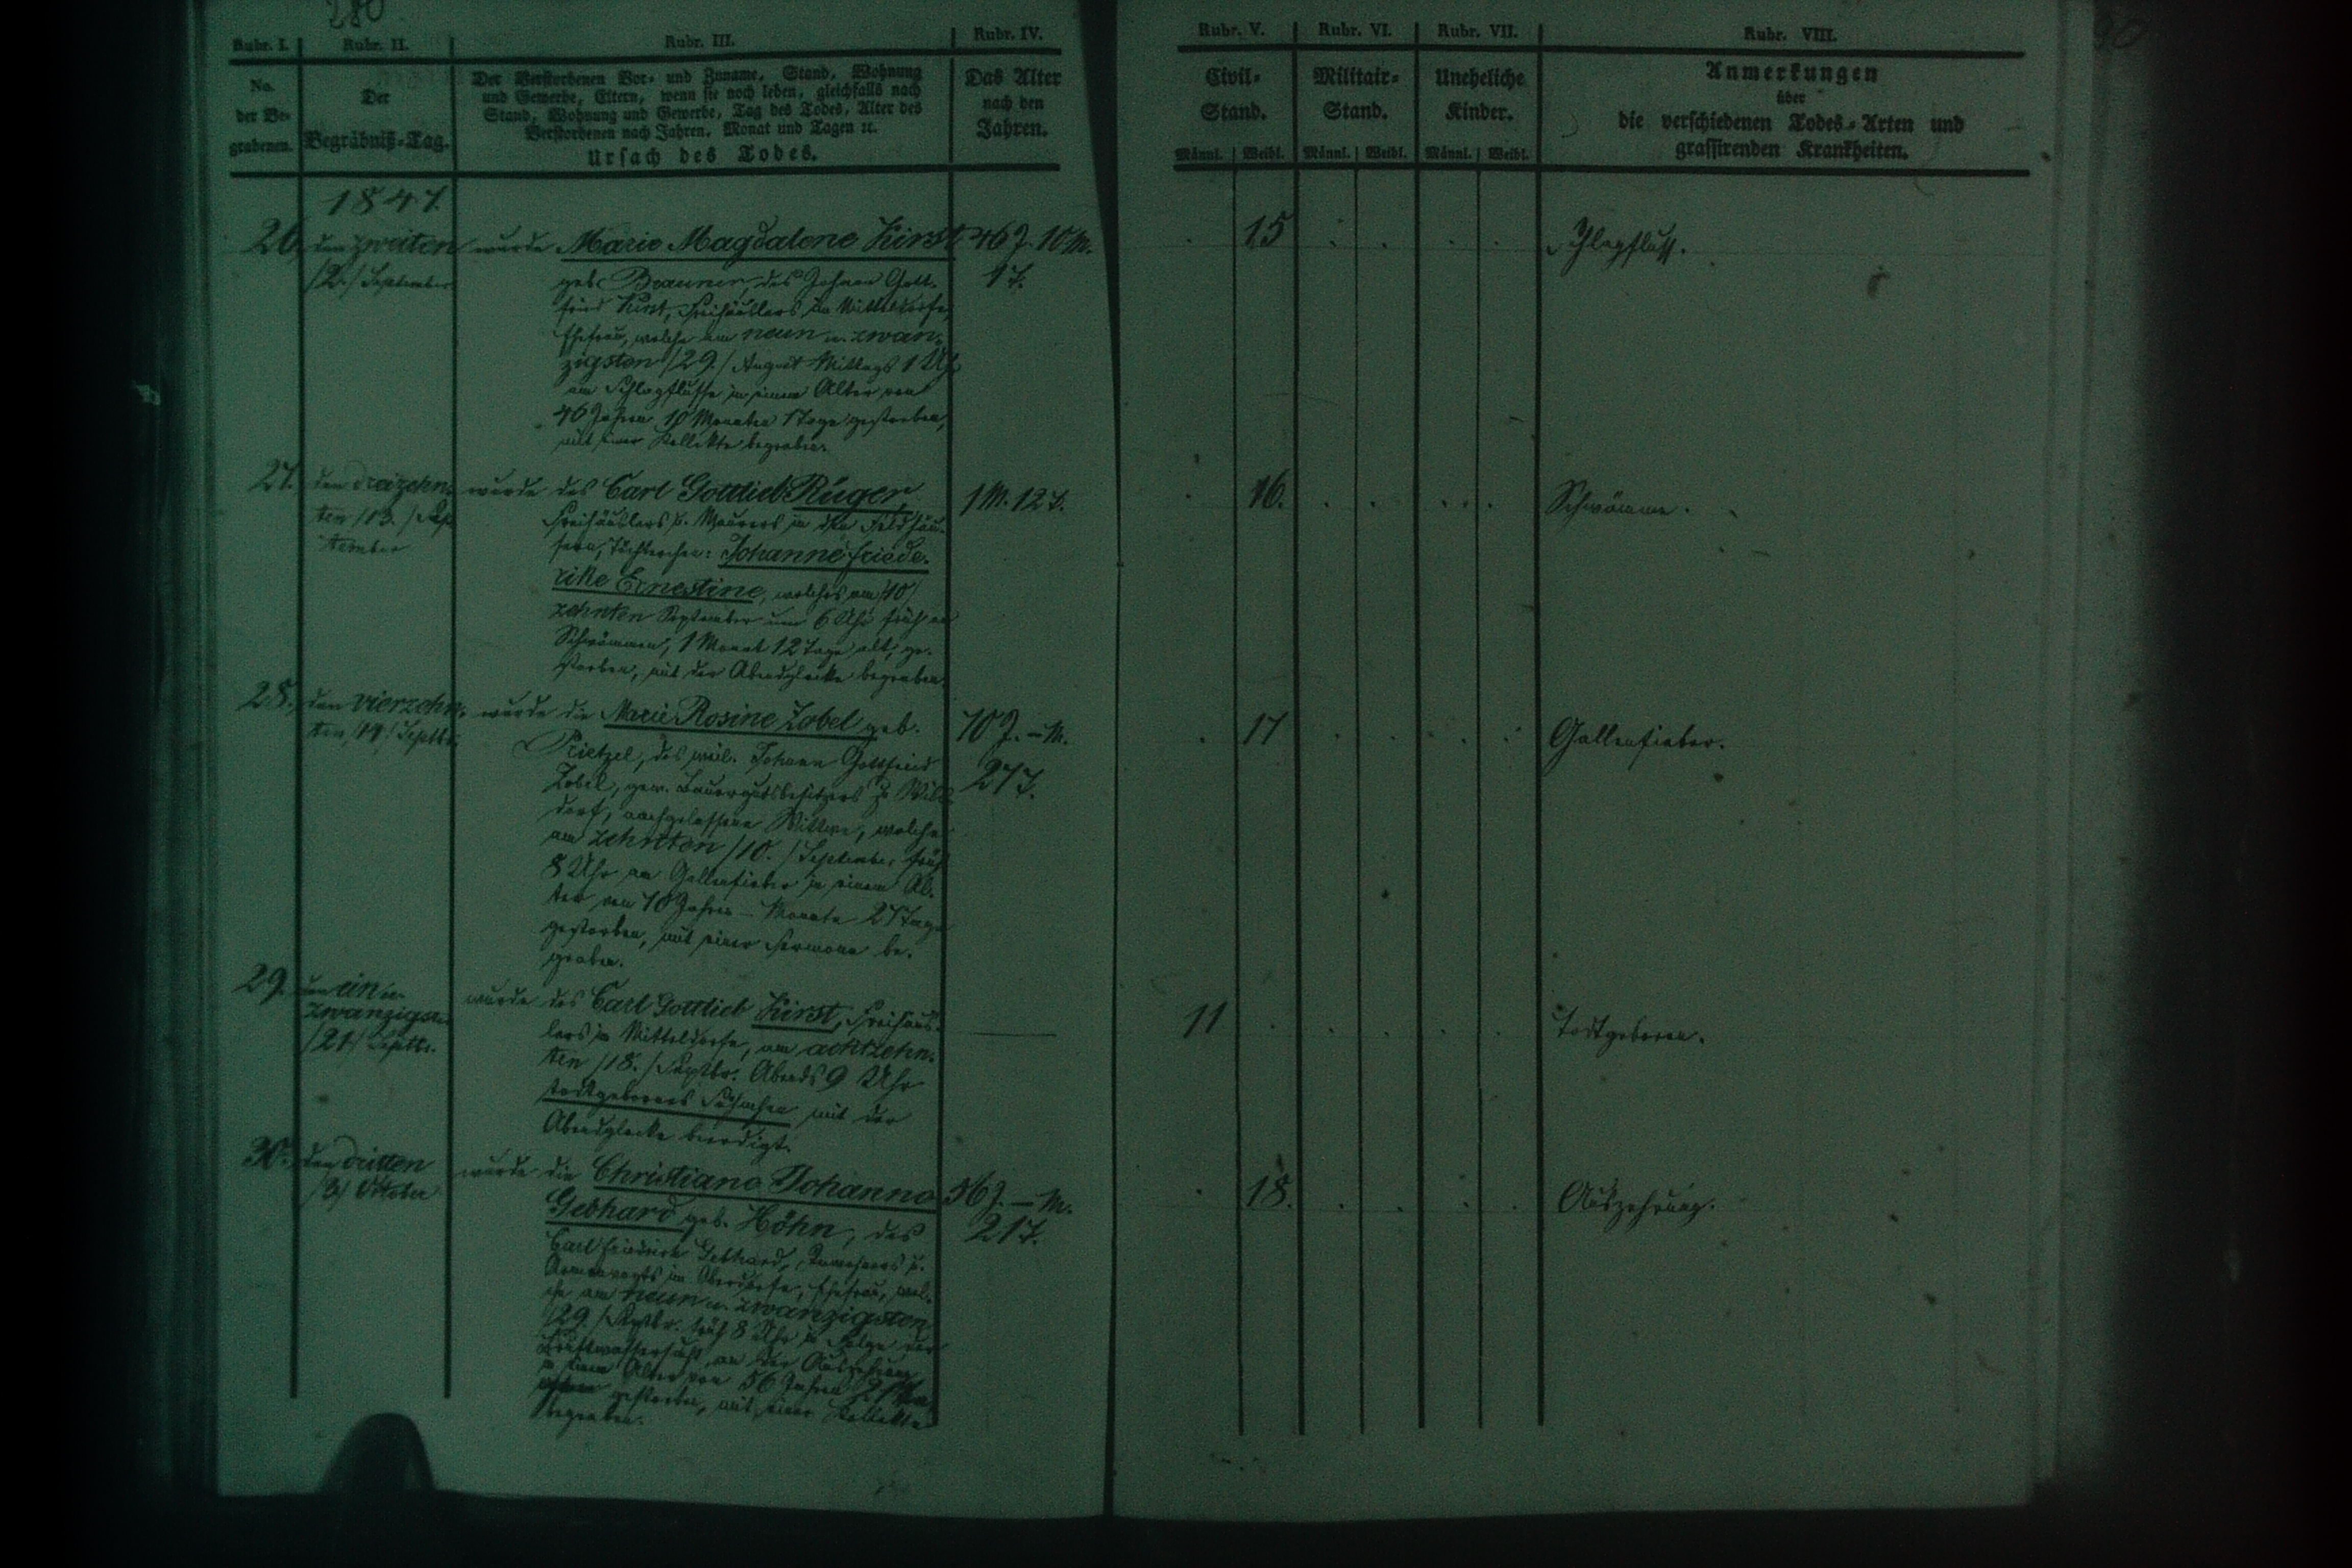 280
Rubr. I. Rubr. II. Rubr. III. Rubr. IV. Rubr. V. Rubr. VI. Rubr. VII. Rubr. VIII.
No. der Be- grabenen.
Der Begräbniß-Tag.
Der Verstorbenen Vor- und Zuname, Stand, Wohnung
und Gewerbe, Eltern, wenn sie noch leben, gleichfalls nach
Stand, Wohnung und Gewerbe, Tag des Todes, Alter des
Verstorbenen nach Jahren, Monat und Tagen ꝛc.
Ursach des Todes.
Das Alter
nach den
Jahren.
Civil-
Stand.
Männl. Weibl.
Militair-
Stand.
Männl. Weibl.
Uneheliche
Kinder.
Männl. Weibl.
Anmerkungen
über
die verschiedenen Todes-Arten und
grassirenden Krankheiten.
1847.
26. den zweiten wurde Marie Magdalene Kirst 46 J. 10 M. 15 Schlagfluss.
/2./ September geb. Brauner, des Johann Gott- 1 T.
fried Kirst, Freihäuslers im Mitteldorfe,
Ehefrau, welche am neun u. zwan-
zigsten /29./ August Mittags 1 Uhr
am Schlagflusse in einem Alter von
46 Jahren 10 Monaten 1 Tage gestorben,
mit einer Kollekte begraben.
27. den dreizehn- wurde des Carl Gottlieb Rüger 1 M. 12 T. 16. Schwämme.
ten /13./ Sep- Freihäuslers u. Maurers in den Feldhäu-
tember sern, Töchterchen: Johanne Friede-
rike Ernestine, welches am /10/
zehnten September um 6 Uhr früh an
Schwämmen, 1 Monat 12 Tage alt, ge-
storben, mit der Abendglocke begraben.
28. den vierzehn- wurde die Marie Rosine Zobel geb. 70 J. – M. 17 Gallenfieber.
ten /14/ Septbr. Prietzel, des weil. Johann Gottfried 27 T.
Zobel, gew. Bauergutsbesitzers zu
dorf, nachgelassene Wittwe, welche
am zehnten /10./ September früh
8 Uhr am Gallenfieber in einem Al-
ter von 70 Jahren – Monate 27 Tage
gestorben, mit einer Sermone be-
graben.
29. den ein u. wurde des Carl Gottlieb Kirst, Freihäus- 11 Todtgeboren.
zwanzigsten lers im Mitteldorfe, am achtzehn-
/21/ Septbr. ten /18./ Septbr. Abends 9 Uhr
todtgebornes Söhnchen mit der
Abendglocke beerdigt.
30. den dritten wurde die Christiane Johanne 56 J. – M. 18. Auszehrung.
/3/ Oktober Gebhard geb. Höhn, des 21 T.
Carl Friedrich Gebhard, Inwohners u.
Armenvogts im Oberdorfe, Ehefrau, wel-
che am neun u. zwanzigsten
/29./ Septbr. früh 8 Uhr in Folge der
Brustwassersucht an der Auszehrung
in einem Alter von 56 Jahren 21 Tagen
gestorben, mit einer Kollekte
begraben.